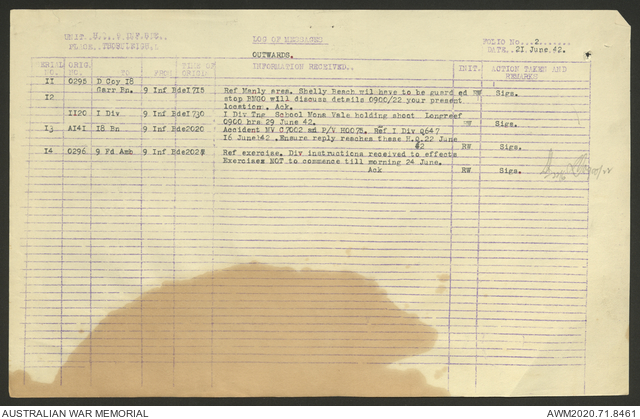 UNIT
LOG OF MESSAGES
FOLIO No...2.......
PLACE
OUTWARDS.
DATE..21 June 42.
SERIAL NO. ORIG. NO. TO FROM TIME OF ORIGIN INFORMATION RECEIVED.. INIT. ACTION TAKEN AND REMARKS
II 0295 D Coy I8
Garr Bn. 9 Inf Bde I7I5 Ref Manly area. Shelly Beach wil have to be guard ed RW Sigs.
I2 stop BNGO will discuss details 0900/22 your present
location. Ack.
II20 I Div 9 Inf Bde I730 I Div Tng School Mona Vale holding shoot Longreef
0900 hrs 29 June 42. RW Sigs.
I3 AI4I I8 Bn 9 Inf Bde 2020 Accident MV C7002 and P/V H0075. Ref I Div 0647
I6 June 42. Ensure reply reaches these H.Q. 22 June
42 RW Sigs.
I4 0296 9 Fd Amb 9 Inf Bde Ref exercise. Div instructions received to effects
Exercises NOT to commence till morning 24 June.
Ack RW Sigs.
AUSTRALIAN WAR MEMORIAL
AWM2020.71.8461